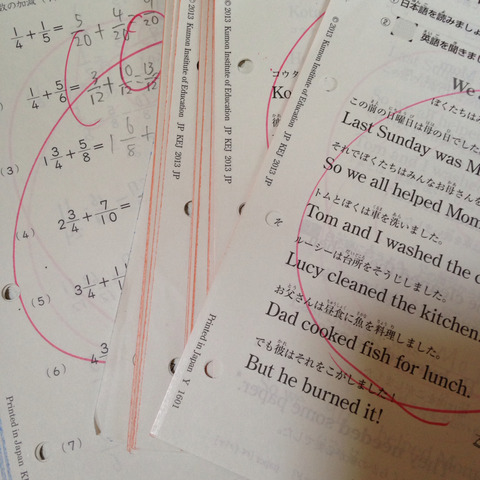 数の加減
1/4 + 1/5 = 5/20 + 4/20 = 9/20
1/4 + 5/6 = 3/12 + 10/12 = 13/12
(3) 1 3/4 + 5/8 = 1 6/8 +
(4) 2 3/4 + 7/10 =
(5) 3 1/4 + 1
(6) 4
(7)
Printed in Japan
©2013 Kumon Institute of Education JP KEJ 2013 JP
©2013 Kumon Institute of Education JP KEJ 2013 JP
コウタ
Ko
彼
そ
©2013 Kumon Institute of Education JP KEJ 2013 JP
Printed in Japan Y 1601
①日本語を読みましょ
② 英語を聞きまし
We
ぼくたちは
この前の日曜日は母の日でした
Last Sunday was M
それでぼくたちはみんなお母さんを
So we all helped Mom
トムとぼくは車を洗いました。
Tom and I washed the c
ルーシーは台所をそうじしました。
Lucy cleaned the kitchen.
お父さんは昼食に魚を料理しました。
Dad cooked fish for lunch.
でも彼はそれをこがしました!
But he burned it!